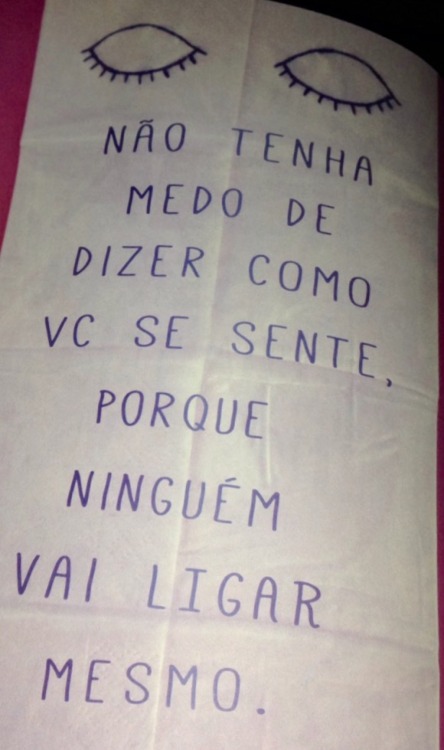 NÃO TENHA
MEDO DE
DIZER COMO
VC SE SENTE,
PORQUE
NINGUÉM
VAI LIGAR
MESMO.